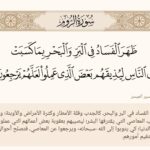 سُورَةُ الرُّومِ
ظَهَرَ الْفَسَادُ فِي الْبَرِّ وَالْبَحْرِ بِمَا كَسَبَتْ
النَّاسِ لِيُذِيقَهُم بَعْضَ الَّذِي عَمِلُوا لَعَلَّهُمْ يَرْجِعُونَ
الفساد في البر والبحر، كالجدب وقلة الأمطار وكثرة الأمراض والأوبئة؛
المعاصي التي يقترفها البشر؛ ليصيبهم بعقوبة بعض أعمالهم التي
كي يتوبوا إلى الله -سبحانه- ويرجعوا عن المعاصي، فتصلح أحوالهم
أمورهم.